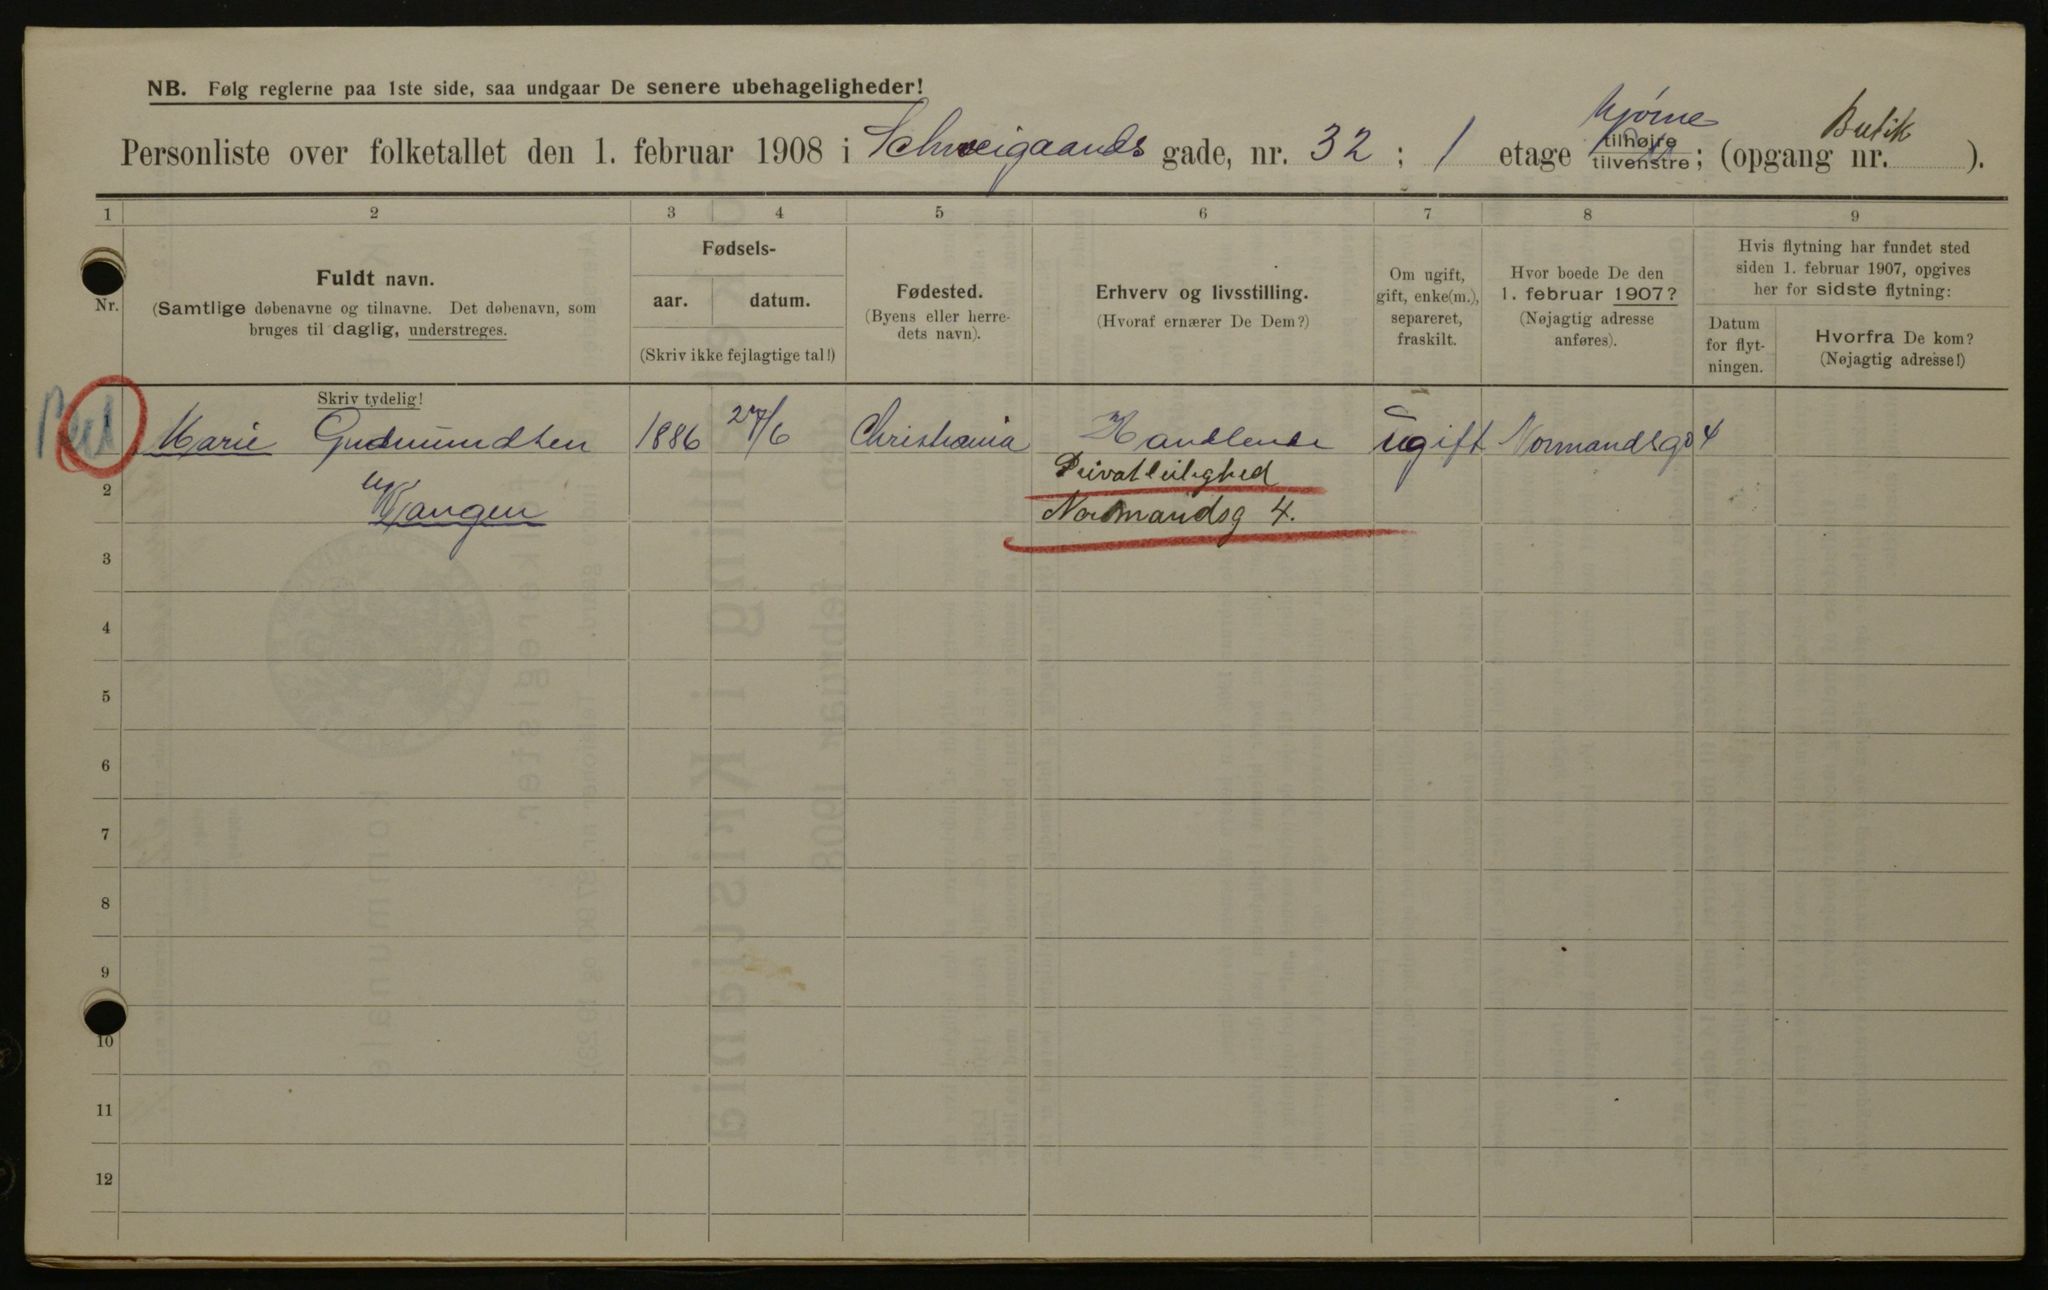 NB. Følg reglerne paa 1ste side, saa undgaar De senere ubehageligheder!
Personliste over folketallet den 1. februar 1908 i Schweigaards gade, nr. 32 ; 1 etage tilhøire tilvenstre ; (opgang nr. Butik ).
Hjørne
1 2 3 4 5 6 7 8 9
Nr.
Fuldt navn.
(Samtlige døbenavne og tilnavne. Det døbenavn, som
bruges til daglig, understreges.
Fødsels-
aar. datum.
(Skriv ikke fejlagtige tal!)
Fødested.
(Byens eller herre-
dets navn).
Erhverv og livsstilling.
(Hvoraf ernærer De Dem?)
Om ugift,
gift, enke(m.),
separeret,
fraskilt.
Hvor boede De den
1. februar 1907?
(Nøjagtig adresse
anføres).
Hvis flytning har fundet sted
siden 1. februar 1907, opgives
her for sidste flytning:
Datum
for flyt-
ningen.
Hvorfra De kom?
(Nøjagtig adresse!)
Skriv tydelig!
1 Marie Gudmundsen 1886 27/6 Christiania Handlende Ugift Normandsgd 4
Privatleilighed
2 Wangen Normandsg 4.
3
4
5
6
7
8
9
10
11
12